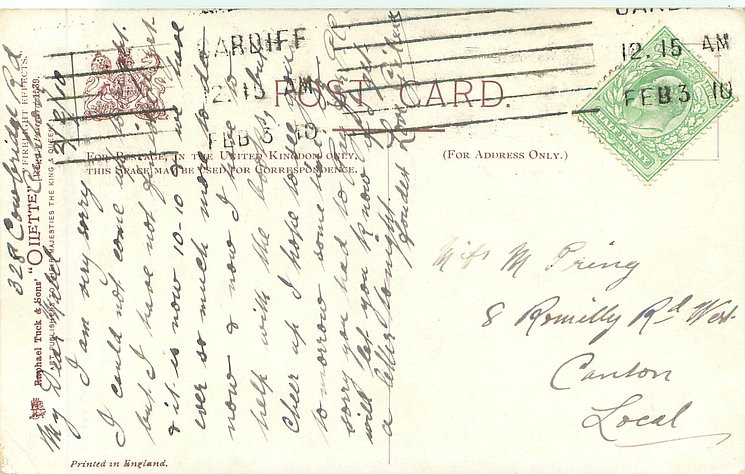 POST CARD.
FOR POSTAGE, IN THE UNITED KINGDOM ONLY,
THIS SPACE MAY BE USED FOR CORRESPONDENCE.
(FOR ADDRESS ONLY.)
CARDIFF
12.15 AM
FEB 3 10
CARDIFF
12.15 AM
FEB 3 10
HALFPENNY
Miss M Pring
8 Romilly Rd West
Canton
Local
328 Cowbridge Rd
2/2/10
My Dear
I am very sorry
I could not come up to
but I have not
& it is now 10-10 we have
ever so much more to do
now & now I have to
help with the books, but
Cheer up I hope to see you
tomorrow some time
sorry you had to
will let you know
a letter tonight
fondest Love
Raphael Tuck & Sons' "OILETTE"
ART PUBLISHERS TO THEIR MAJESTIES THE KING & QUEEN
FIRELIGHT EFFECTS.
Printed in England.